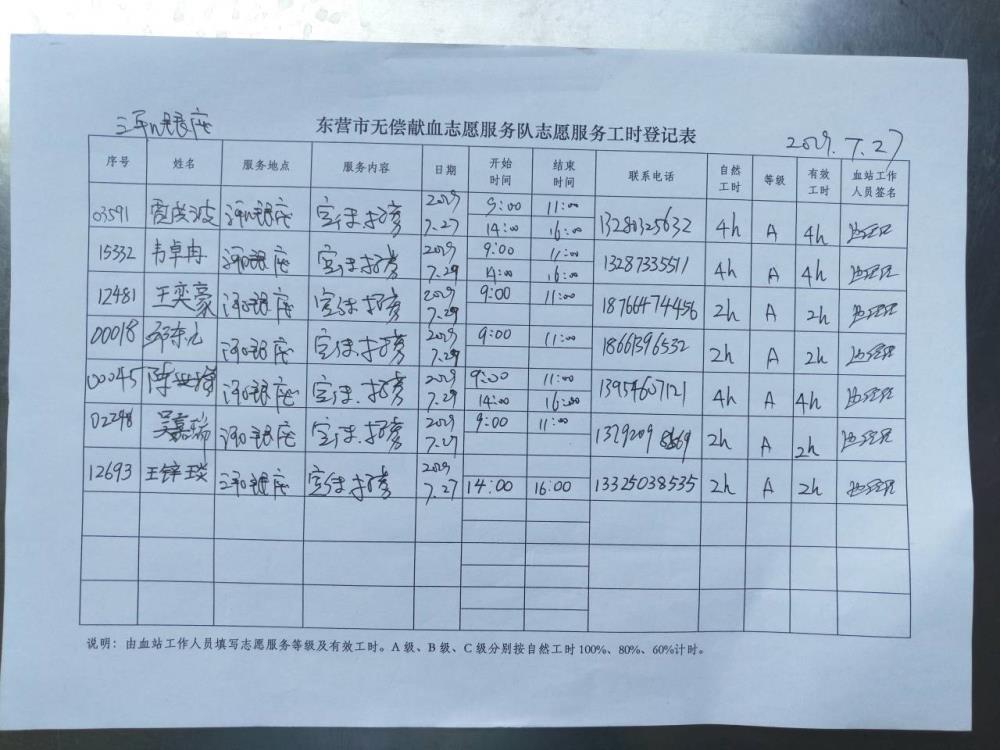 东营市无偿献血志愿服务队志愿服务工时登记表
2019.7.27
序号 姓名 服务地点 服务内容 日期 开始时间 结束时间 联系电话 自然工时 等级 有效工时 血站工作人员签名
03591 银座 宣传招募 2019 7.27 9:00 11:00 14:00 16:00 13280325632 4h A 4h
15332 韦卓冉 银座 宣传招募 2019 9:00 11:00 14:00 16:00 13287335511 4h A 4h
12481 王奕豪 银座 宣传招募 2019 9:00 11:00 18766474456 2h A 2h
00018 银座 宣传招募 2019 9:00 11:00 18661396532 2h A 2h
00045 银座 宣传招募 2019 9:00 11:00 14:00 16:00 13954607121 4h A 4h
02248 吴嘉瑞 银座 宣传招募 2019 7.27 9:00 11:00 2h A 2h
12693 王锌琰 银座 宣传招募 2019 7.27 14:00 16:00 13325038535 2h A 2h
说明：由血站工作人员填写志愿服务等级及有效工时。A级、B级、C级分别按自然工时100%、80%、60%计时。